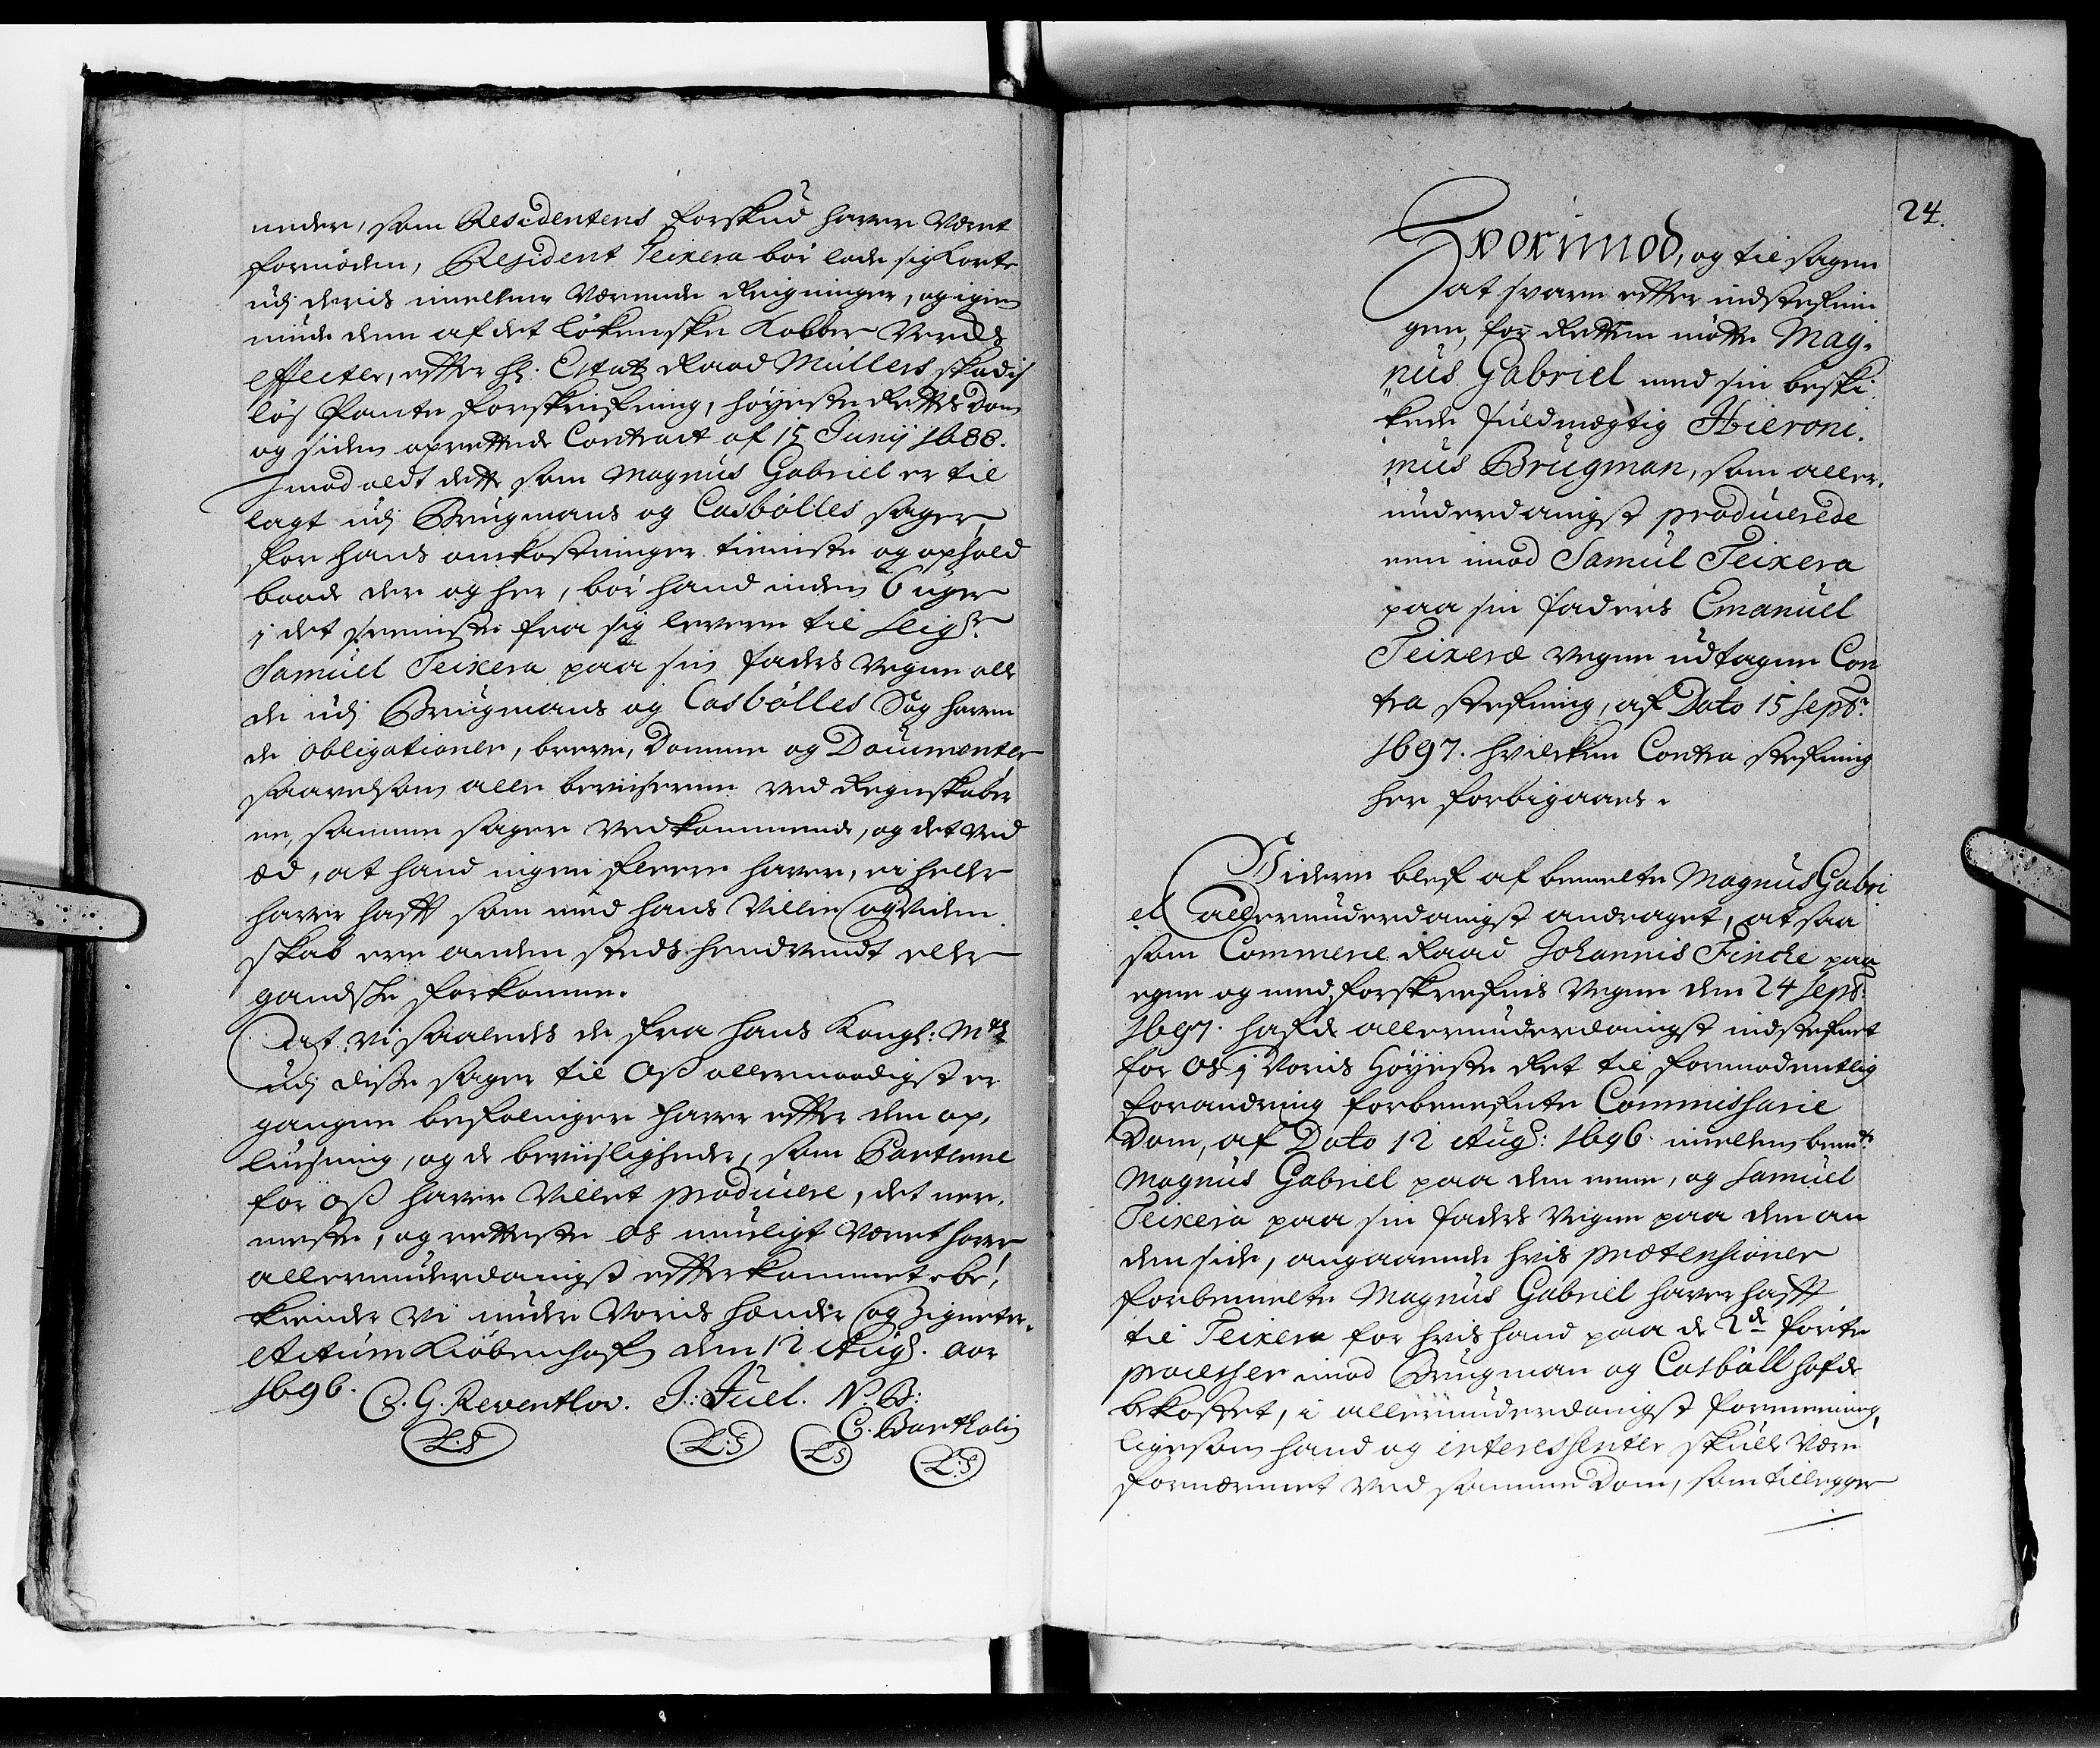 under, som Residentens forskud hafver været
formoden, Resident Teixera bør lade sig korte
udj deris imellem værende Reigninger, og igien
vinde dem af det Løkenske Kobber Vercks
effecter, efter Hr: Etatz Raad Müllers skadis
løs Pante forskrifning, høyeste Rettes Dom
og siden oprettede Contract af 15 Junij 1688.
Imod aldt dette som Magnus Gabriel er til
lagt udj Brugmans og Casbølles sager,
for hans omkostninger tienniste og ophold
baade der og her, bør hand inden 6 uger
i det seeniste fra sig levere til Seigr
Samuel Teixera paa sin faders vegne alle
de udj Brugmans og Casbølles Sag hafven
de obligationer, breve, Domme og Documenter
saavelsom alle beviiserne ved Regnskaber
ne, samme sager vedkommende, og det ved
æd, at hand ingen fleere hafver, ei heller
hafver hafft som med hans Villie og viden
skab ere anden steds hendvendt eller
gandske forkomne.
Dat vi saaledes de fra hans Kongl: Mtz
udj disse sager til Oss allernaadigst er
gangne befalninger hafver efter den op,
liusning, og de beviisligheder, som Parterne
for oss hafver villet producere, det nær,
meste, og retteste os mueligt været hafver
allerunderdanigst efterkommet be,
kiender vi under Voris hænder og Zigneter.
Actum Kiøbenhafn den 12 Aug. aar
1696. C. G. Reventlov. J: Juel. N. B:
C. Bartholin
L:S L:S L:S L:S
24.
Hvorimod, og til sagen
at svare efter indstefnin
gen, for Retten møtte Mag,
nus Gabriel med sin beski,
kede fuldmægtig Hieroni,
mus Brugman, som aller,
underdanigst producerede
een imod Samuel Teixera
paa sin faders Emanuel
Teixeræ vegne udtagen Con
tra stefning, af Dato 15 Septr
1697. hvilcken Contra stefning
her forbigaaes.
Videre blef af bemelte Magnus Gabri
el allerunderdanigst andraget, at saa
som Commerce Raad Johannis Finche paa
egne og med forskrefnis vegne den 24 Septr:
1697. hafde allerunderdanigst indstefnet
for os i Voris Høyeste Ret til formodentlig
forandring forbenefnte Commissarie
Dom, af Dato 12 Aug: 1696. imellem bemte
Magnus Gabriel paa den eene, og Samuel
Teixera paa sin faders Vegne paa den an
den side, angaaende hvis prætensioner
forbemelte Magnus Gabriel hafver hafft
til Teixera for hvis hand paa de 2de førte
processer imod Brugman og Casbøll hafde
bekostet, i allerunderdanigst formeening,
ligesom hand og interessenter skulle være
fornærmet ved samme Dom, som tillegger